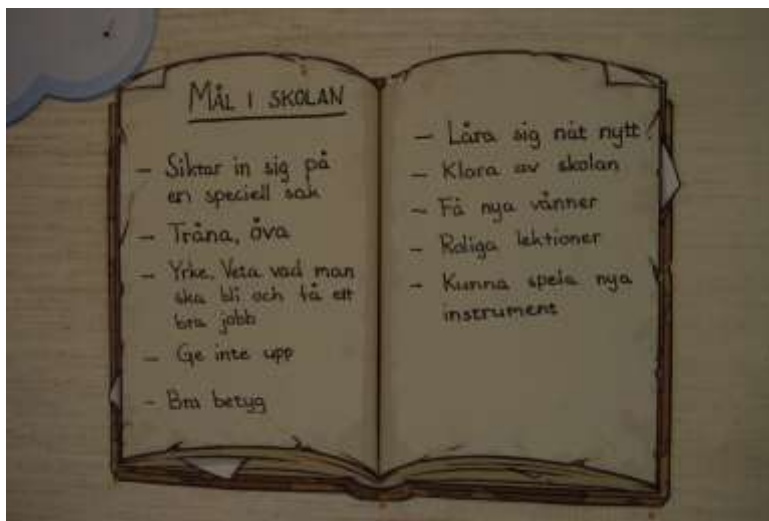 MÅL I SKOLAN
- Siktar in sig på
en speciell sak
- Träna, öva
- Yrke. Veta vad man
ska bli och få ett
bra jobb
- Ge inte upp
- Bra betyg
- Lära sig nåt nytt!
- Klara av skolan
- Få nya vänner
- Roliga lektioner
- Kunna spela nya
instrument